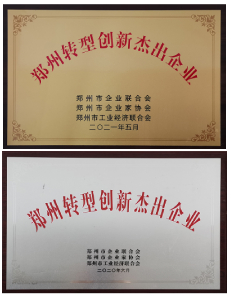 郑州转型创新杰出企业
郑州市企业联合会
郑州市企业家协会
郑州市工业经济联合会
二〇二一年五月
郑州转型创新杰出企业
郑州市企业联合会
郑州市企业家协会
郑州市工业经济联合会
二〇二〇年六月